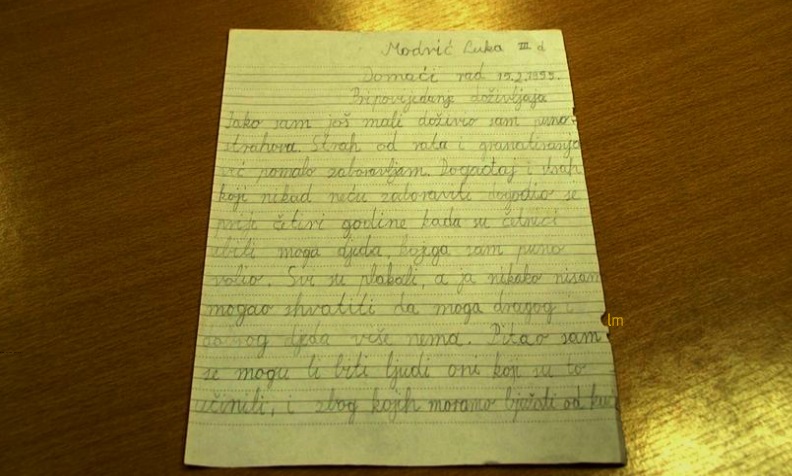 Modrić Luka III d
Domaći rad 15.2.1995.
Pripovijedanje doživljaja
Iako sam još mali doživio sam puno
strahova. Strah od rata i granatiranja
već pomalo zaboravljam. Događaj i strah
koji nikad neću zaboraviti dogodio se
prije četiri godine kada su četnici
ubili moga djeda, kojega sam puno
volio. Svi su plakali, a ja nikako nisam
mogao shvatiti da moga dragog i
lm
djeda više nema. Pitao sam
se mogu li biti ljudi oni koji su to
učinili, i zbog kojih moramo bježati od kuće